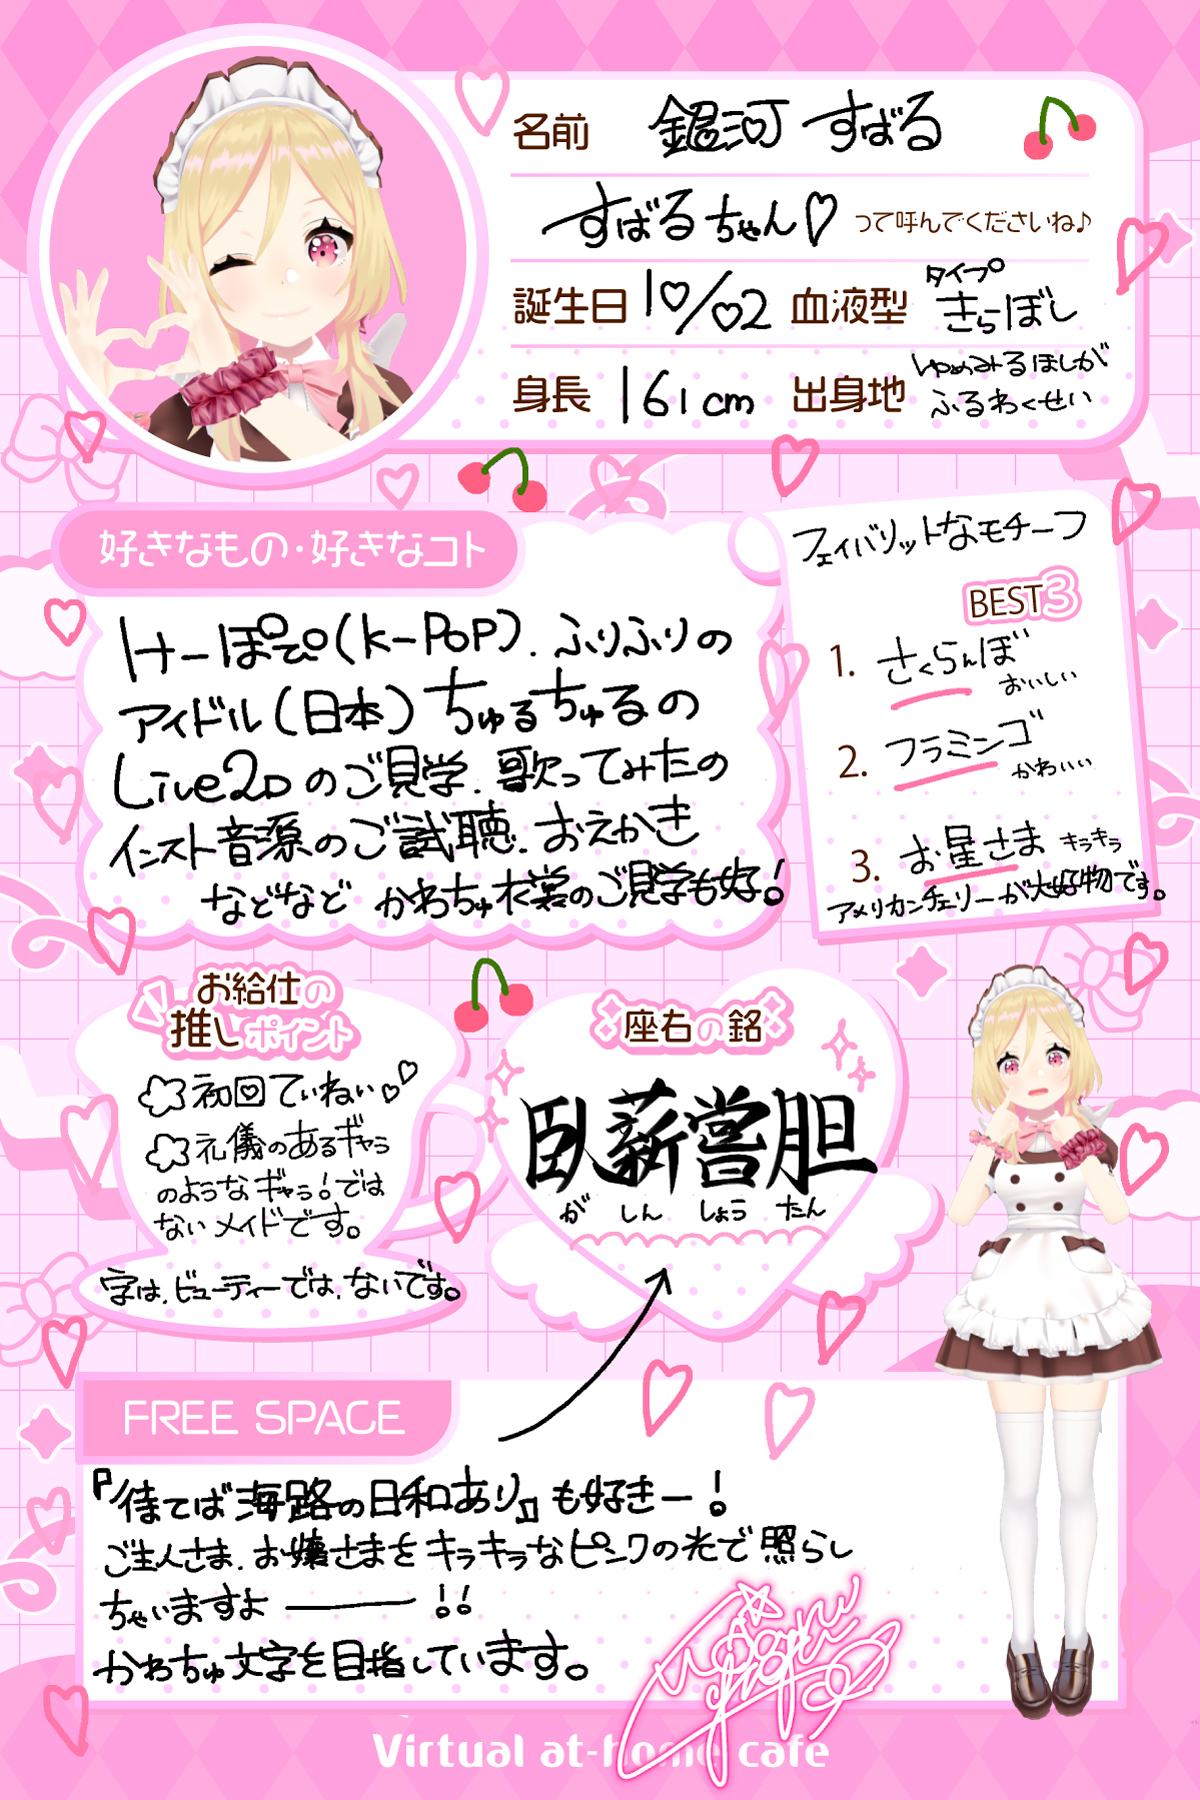 名前 銀河 すばる
すばるちゃん♡ って呼んでくださいね♪
誕生日 10/02 血液型 タイプ きらぼし
身長 161cm 出身地 ゆめみるほしが
ふるわくせい
好きなもの・好きなコト
けーぽぴ(K-POP).ふりふりの
アイドル(日本)ちゅるちゅるの
Live2Dのご見学.歌ってみたの
インスト音源のご試聴.おえかき
などなど かわちゅ衣裳のご見学も好!
フェイバリットなモチーフ
BEST3
1. さくらんぼ おいしい
2. フラミンゴ かわいい
3. お星さま キラキラ
アメリカンチェリーが大好物です。
お給仕の
推しポイント
初回ていねい♡♡
礼儀のあるギャラ
のようなギャラ!では
ないメイドです。
字は.ビューティーでは.ないです。
座右の銘
臥薪嘗胆
が しん しょう たん
FREE SPACE
『待てば海路の日和あり』も好きー!
ご主人さま.お嬢さまをキラキラなピンクの光で照らし
ちゃいますよ――!!
かわちゅ文字を目指しています。
Virtual at-home cafe